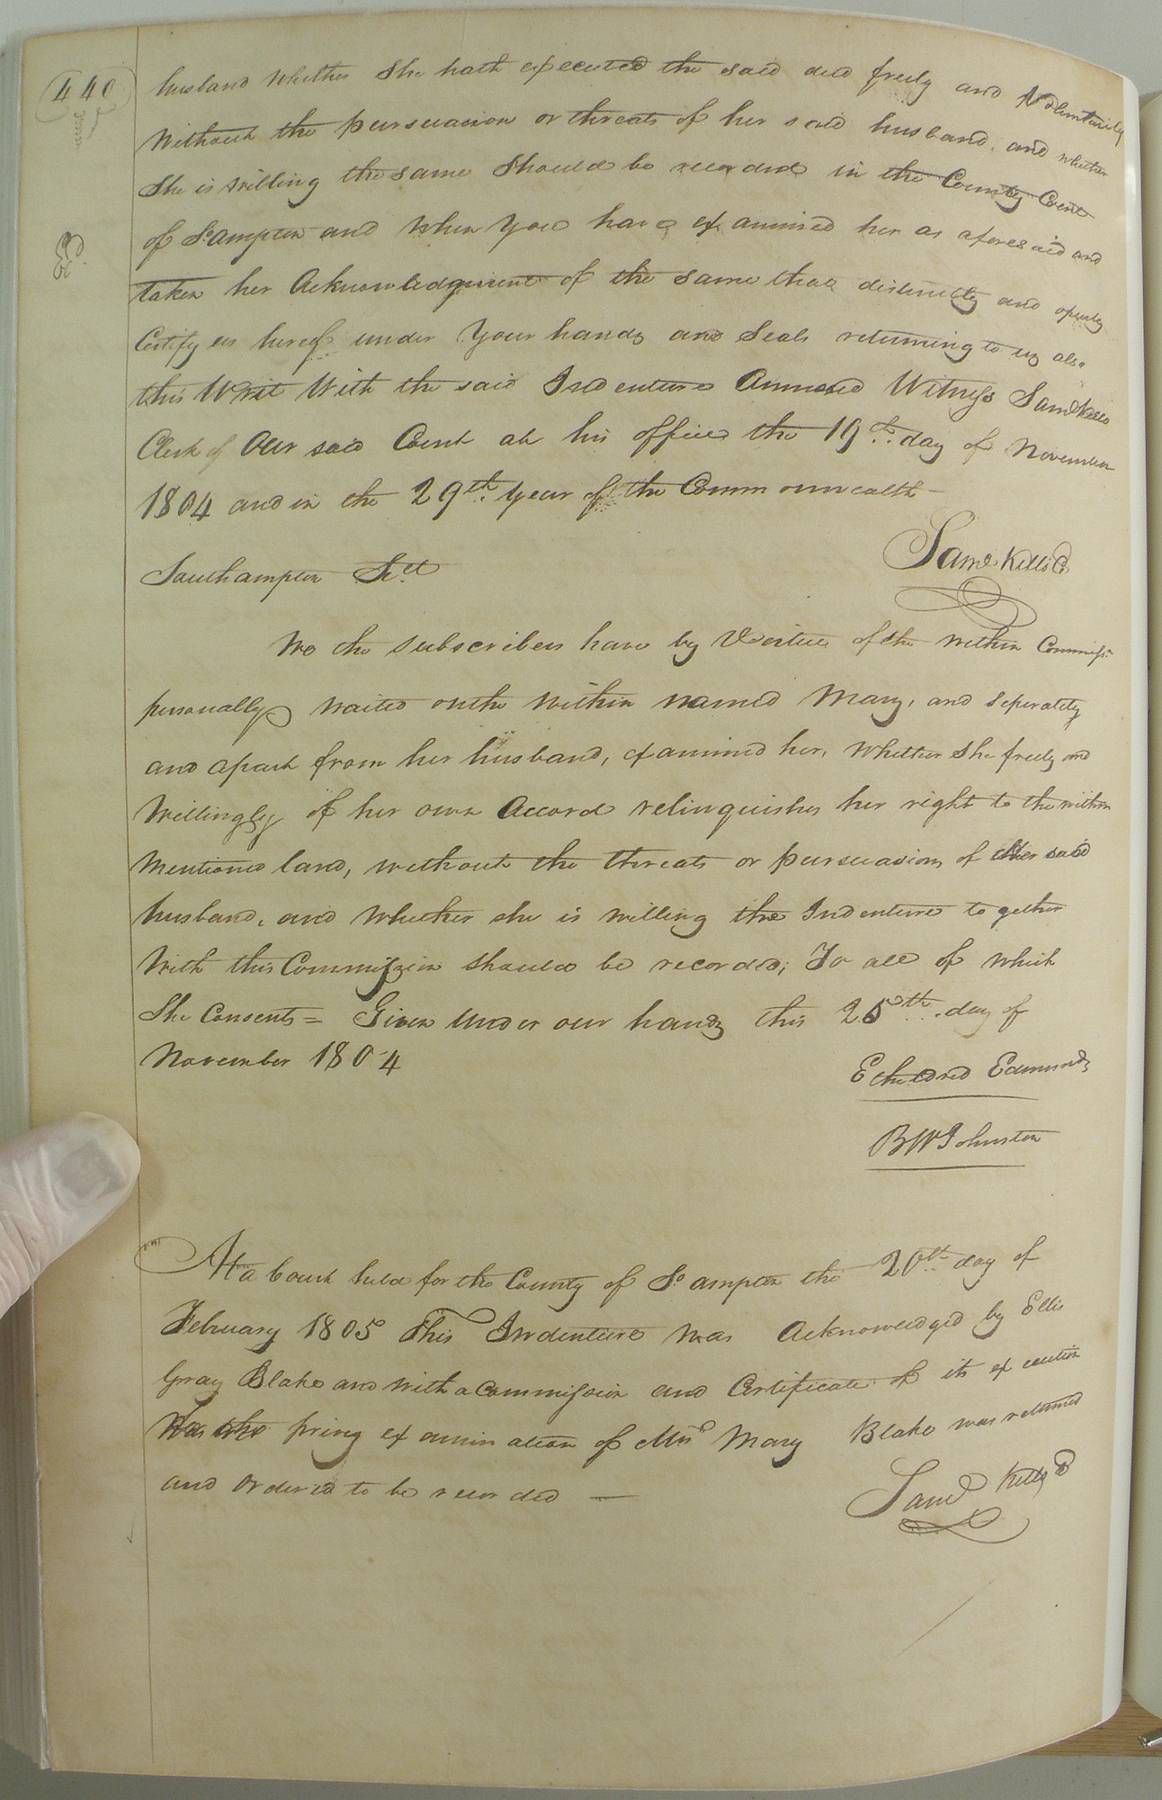 440
husband whether she hath executed the said deed freely and Voluntarily
Without the pursuasion or threats of her said husband, and whether
She is Willing the same Should be recorded in the County Court
of So.ampton and When You have examined her as aforesaid and
taken her Acknowledgment of the same that distinctly and openly
Certify us hereof under Your hands and Seals returning to us also
this Writ With the said Indenture Annexed Witness Saml Kello
Clerk of Our said Court at his office the 19th day of November
1804 and in the 29th Year of the Commonwealth —
Saml Kello C
Southampton Sct
We the subscribers have by Vertue of the within Commissn
personally waited on the Within named Mary, and Seperately
and apart from her husband, examined her, Whether She freely and
Willingly of her own Accord relinquishes her right to the within
Mentioned land, without the threats or pursuasions of her said
husband, and Whether she is willing the Indenture together
With this Commission should be recorded; To all of which
She Consents = Given Under our hands this 25th day of
November 1804
Etheldred Edmunds
BW Johnston
At a Court held for the County of So.ampton the 20th day of
February 1805 This Indenture was Acknowledged by Ellis
Gray Blake and with a Commission and Certificate of its execution
for the privy examination of Mrs Mary Blake was returned
and ordered to be recorded —
Saml Kello C